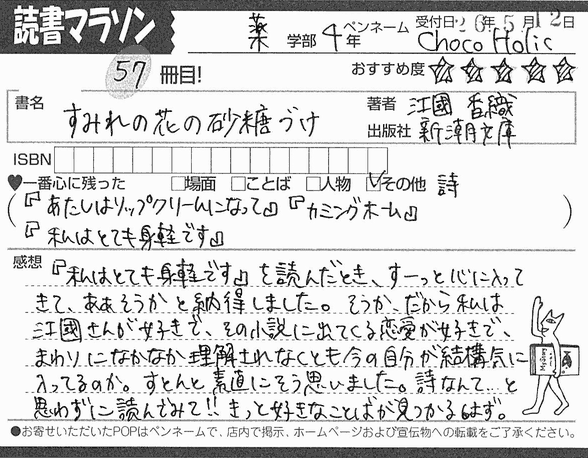 読書マラソン
薬 学部 4年 ペンネーム 受付日 26年5月12日
Choco Holic
57 冊目! おすすめ度
書名 すみれの花の砂糖づけ 著者 江國 香織
出版社 新潮文庫
ISBN
♥一番心に残った □場面 □ことば □人物 ☑その他 詩
(『あたしはリップクリームになって』『カミングホーム』
『私はとても身軽です』)
感想 『私はとても身軽です』を読んだとき、すーっと心に入って
きて、ああそうかと納得しました。そうか、だから私は
江國さんが好きで、その小説に出てくる恋愛が好きで、
まわりになかなか理解されなくとも今の自分が結構気に
入ってるのか。すとんと素直にそう思いました。詩なんて…と
思わずに読んでみて!!きっと好きなことばが見つかるはず。
●お寄せいただいたPOPはペンネームで、店内で掲示、ホームページおよび宣伝物への転載をご了承ください。